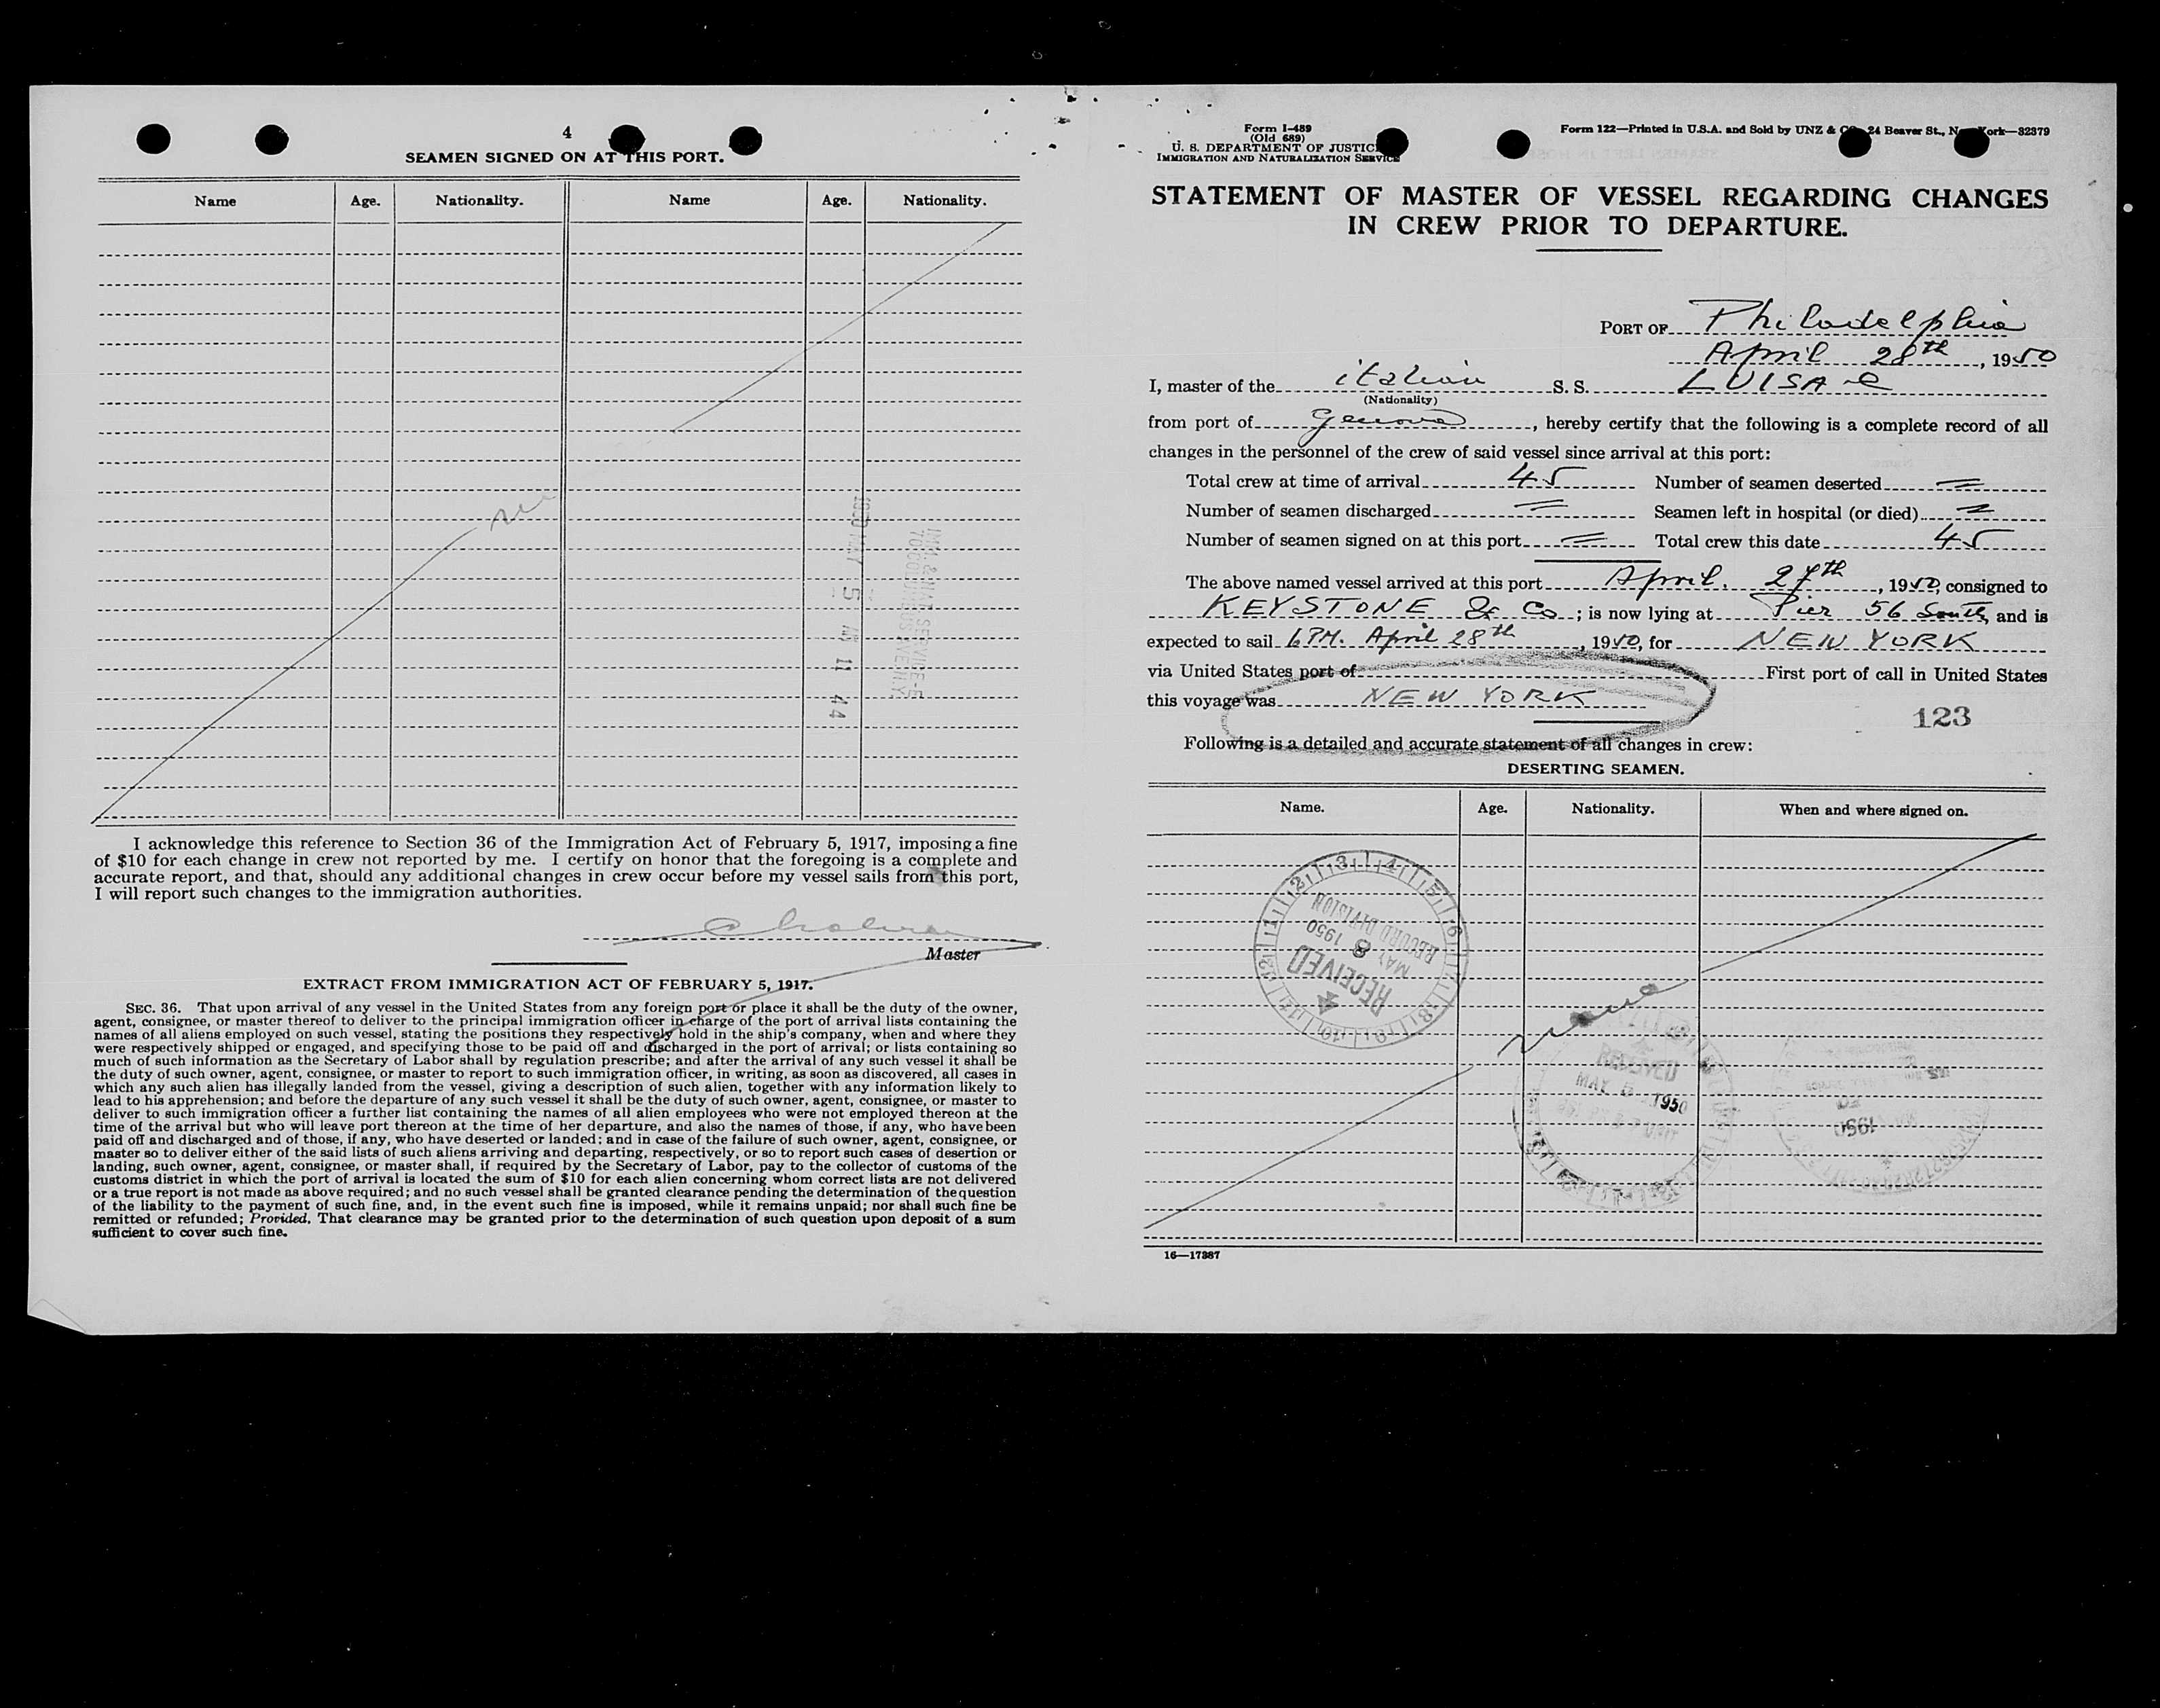 4
SEAMEN SIGNED ON AT THIS PORT.
Name Age. Nationality. Name Age. Nationality.
1950 MAY 5 AM 11 44
I acknowledge this reference to Section 36 of the Immigration Act of February 5, 1917, imposing a fine
of $10 for each change in crew not reported by me. I certify on honor that the foregoing is a complete and
accurate report, and that, should any additional changes in crew occur before my vessel sails from this port,
I will report such changes to the immigration authorities.
Master
EXTRACT FROM IMMIGRATION ACT OF FEBRUARY 5, 1917.
SEC. 36. That upon arrival of any vessel in the United States from any foreign port or place it shall be the duty of the owner,
agent, consignee, or master thereof to deliver to the principal immigration officer in charge of the port of arrival lists containing the
names of all aliens employed on such vessel, stating the positions they respectively hold in the ship's company, when and where they
were respectively shipped or engaged, and specifying those to be paid off and discharged in the port of arrival; or lists containing so
much of such information as the Secretary of Labor shall by regulation prescribe; and after the arrival of any such vessel it shall be
the duty of such owner, agent, consignee, or master to report to such immigration officer, in writing, as soon as discovered, all cases in
which any such alien has illegally landed from the vessel, giving a description of such alien, together with any information likely to
lead to his apprehension; and before the departure of any such vessel it shall be the duty of such owner, agent, consignee, or master to
deliver to such immigration officer a further list containing the names of all alien employees who were not employed thereon at the
time of the arrival but who will leave port thereon at the time of her departure, and also the names of those, if any, who have been
paid off and discharged and of those, if any, who have deserted or landed; and in case of the failure of such owner, agent, consignee, or
master so to deliver either of the said lists of such aliens arriving and departing, respectively, or so to report such cases of desertion or
landing, such owner, agent, consignee, or master shall, if required by the Secretary of Labor, pay to the collector of customs of the
customs district in which the port of arrival is located the sum of $10 for each alien concerning whom correct lists are not delivered
or a true report is not made as above required; and no such vessel shall be granted clearance pending the determination of the question
of the liability to the payment of such fine, and, in the event such fine is imposed, while it remains unpaid; nor shall such fine be
remitted or refunded; Provided, That clearance may be granted prior to the determination of such question upon deposit of a sum
sufficient to cover such fine.
Form I-489
(Old 689)
U. S. DEPARTMENT OF JUSTICE
IMMIGRATION AND NATURALIZATION SERVICE
Form 122—Printed in U.S.A. and Sold by UNZ & CO., 24 Beaver St., New York—32379
STATEMENT OF MASTER OF VESSEL REGARDING CHANGES
IN CREW PRIOR TO DEPARTURE.
PORT OF Philadelphia
April 28th, 1950
I, master of the italian S. S. LUISA C
(Nationality)
from port of Genova, hereby certify that the following is a complete record of all
changes in the personnel of the crew of said vessel since arrival at this port:
Total crew at time of arrival 45 Number of seamen deserted =
Number of seamen discharged = Seamen left in hospital (or died) =
Number of seamen signed on at this port = Total crew this date 45
The above named vessel arrived at this port April. 27th, 1950, consigned to
KEYSTONE & Co; is now lying at Pier 56 South, and is
expected to sail 6 PM. April 28th, 1950, for NEW YORK
via United States port of First port of call in United States
this voyage was NEW YORK
123
Following is a detailed and accurate statement of all changes in crew:
DESERTING SEAMEN.
Name. Age. Nationality. When and where signed on.
RECEIVED
MAY 8 1950
RECORD DIVISION
none
RECEIVED
MAY 5 1950
1950
16—17387